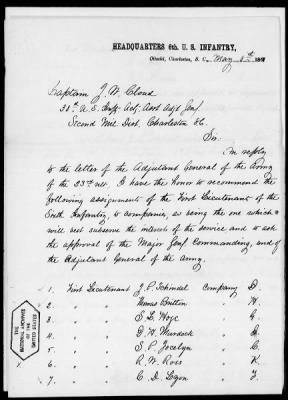 HEADQUARTERS 6th. U. S. INFANTRY,
Citadel, Charleston, S. C., May 8th 18
Captain J. W. Cloud
38th U. S. Inf. Act. Asst Adj Genl
Second Mil Dist. Charleston S.C.
Sir.
In reply
to the letter of the Adjutant General of the Army
of the 23rd ult. I have the honor to recommend the
following assignments of the First Lieutenants of the
Sixth Infantry, to companies, as being the one which
will best subserve the interests of the service and to ask
the approval of the Major Genl Commanding, and of
the Adjutant General of the Army.
1. First Lieutenant J. P. Schindel Company D.
2. Thomas Britton H.
3. S. L. Hoge G.
4. D. H. Murdock
5. S. P. Jocelyn
6. R. W. Ross K.
7. C. D. Logan
THE
NATIONAL ARCHIVES
OF THE
UNITED STATES